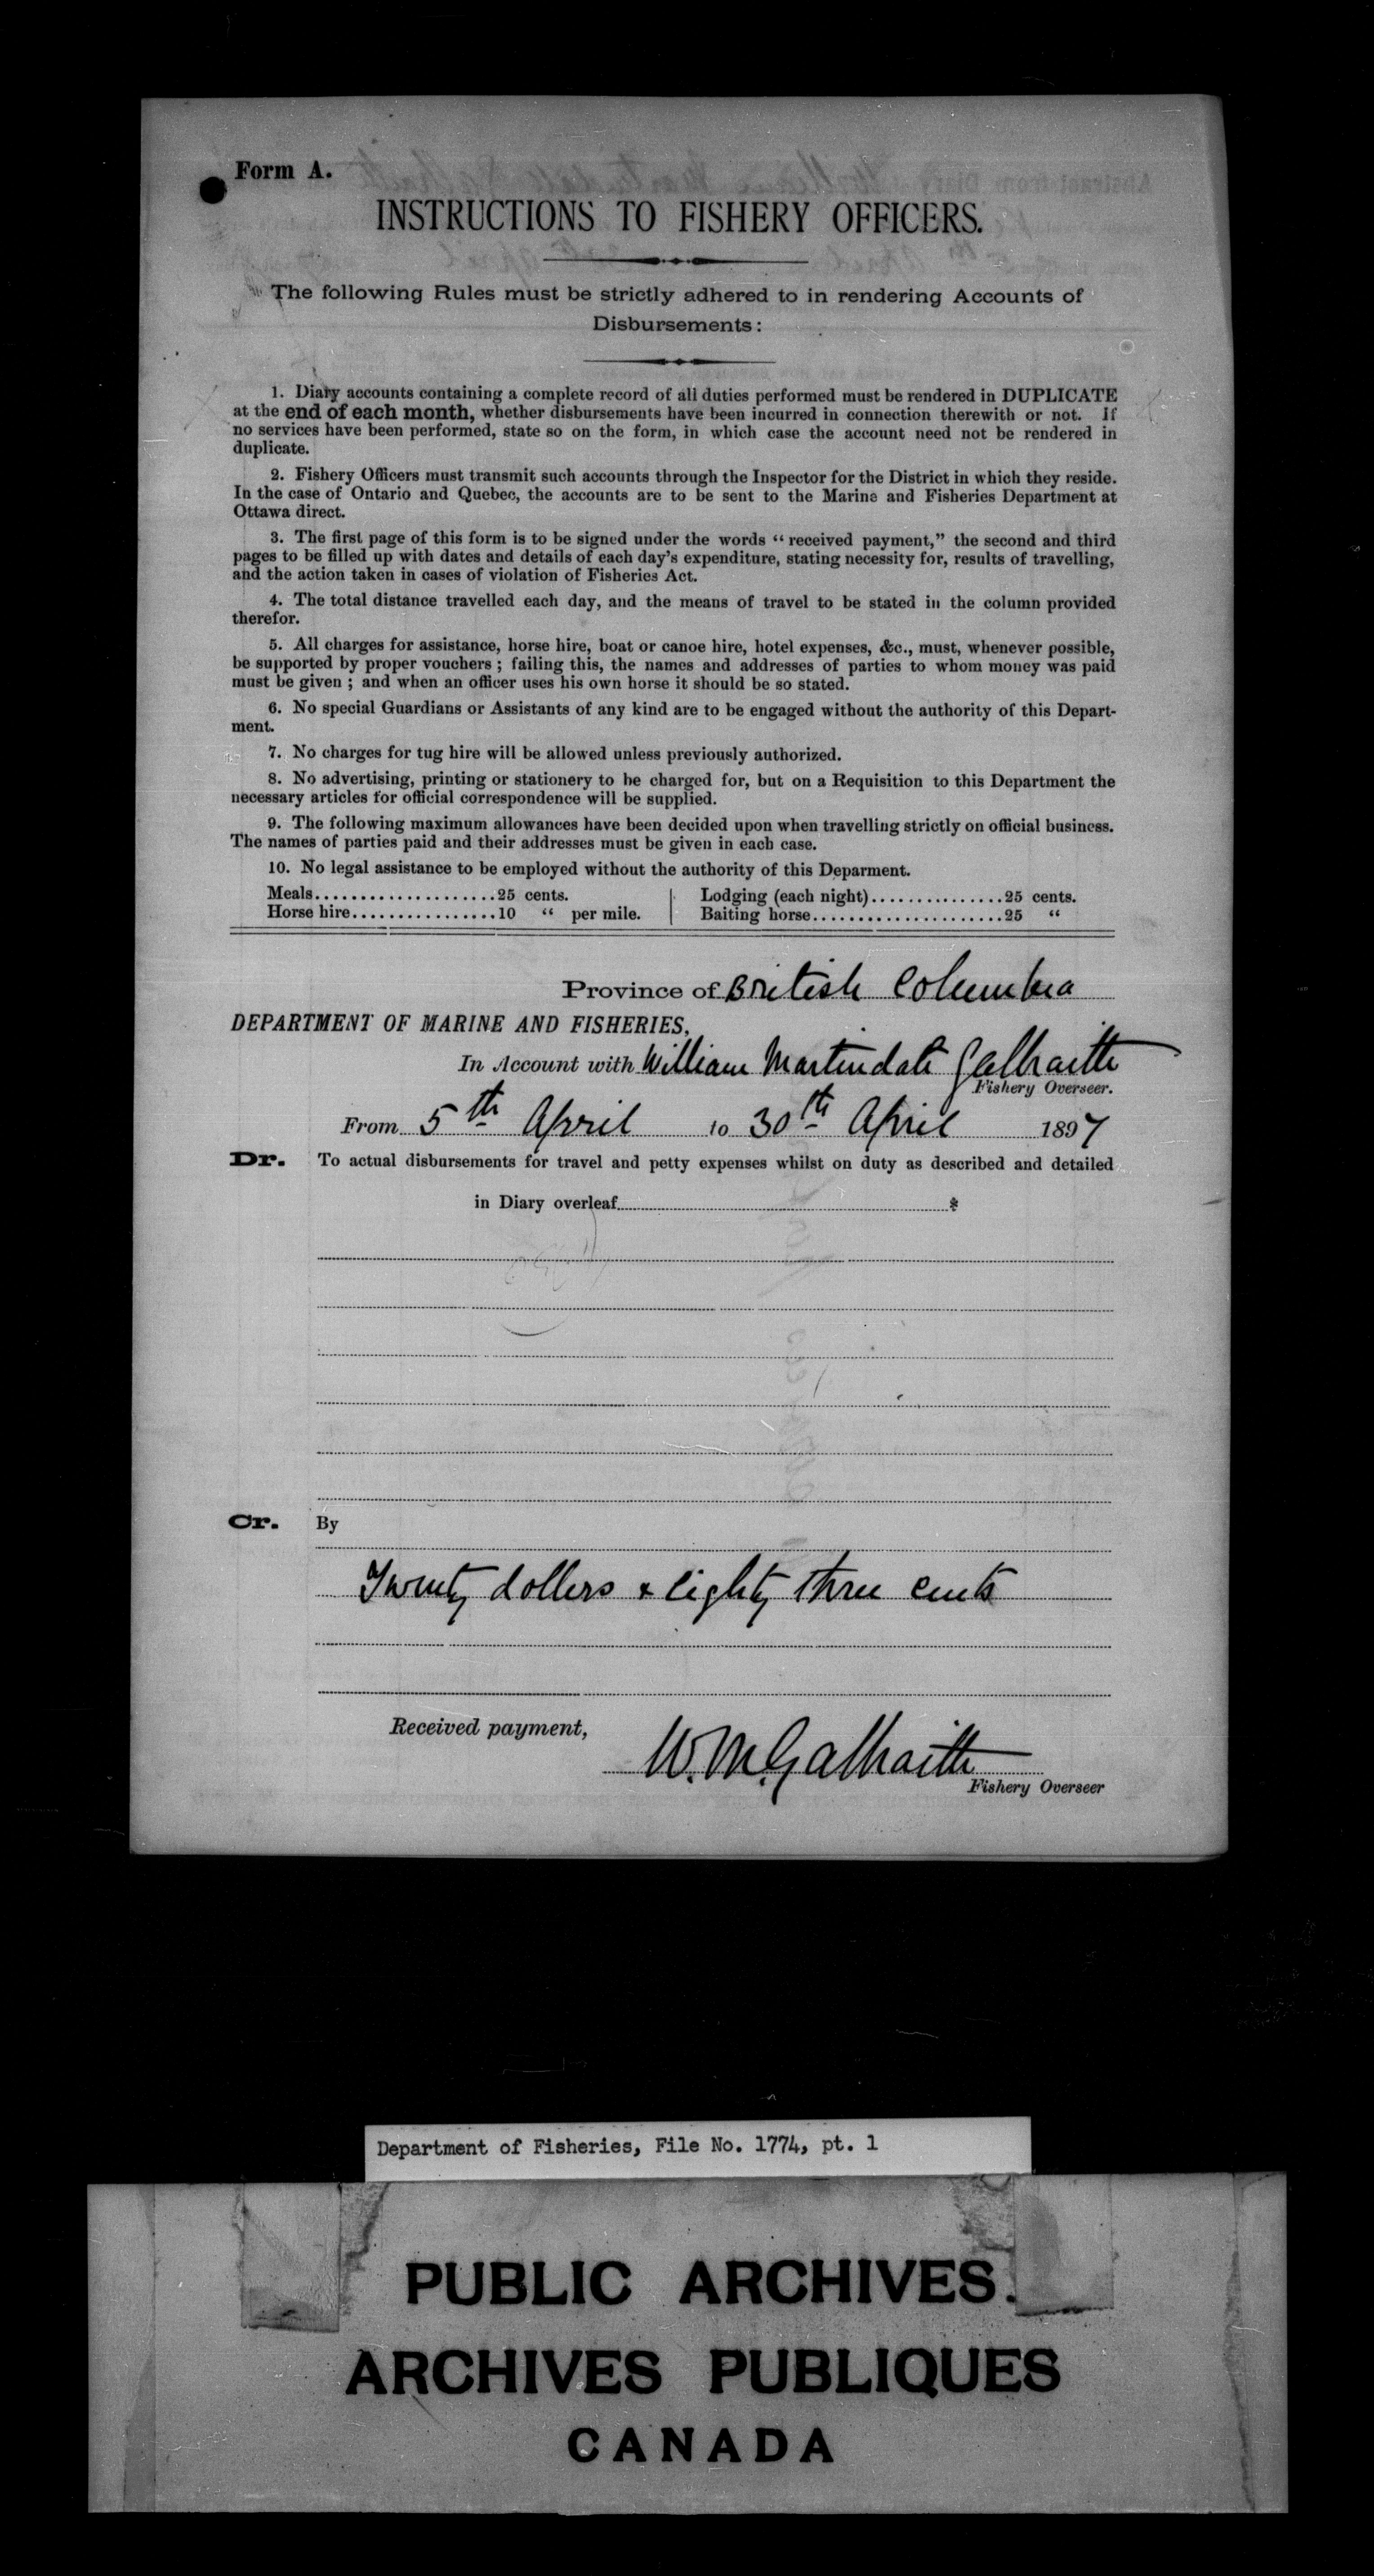 Form A.
INSTRUCTIONS TO FISHERY OFFICERS.
The following Rules must be strictly adhered to in rendering Accounts of
Disbursements:
1. Diary accounts containing a complete record of all duties performed must be rendered in DUPLICATE
at the end of each month, whether disbursements have been incurred in connection therewith or not. If
no services have been performed, state so on the form, in which case the account need not be rendered in
duplicate.
2. Fishery Officers must transmit such accounts through the Inspector for the District in which they reside.
In the case of Ontario and Quebec, the accounts are to be sent to the Marine and Fisheries Department at
Ottawa direct.
3. The first page of this form is to be signed under the words “received payment,” the second and third
pages to be filled up with dates and details of each day's expenditure, stating necessity for, results of travelling,
and the action taken in cases of violation of Fisheries Act.
4. The total distance travelled each day, and the means of travel to be stated in the column provided
therefor.
5. All charges for assistance, horse hire, boat or canoe hire, hotel expenses, &c., must, whenever possible,
be supported by proper vouchers; failing this, the names and addresses of parties to whom money was paid
must be given; and when an officer uses his own horse it should be so stated.
6. No special Guardians or Assistants of any kind are to be engaged without the authority of this Depart-
ment.
7. No charges for tug hire will be allowed unless previously authorized.
8. No advertising, printing or stationery to be charged for, but on a Requisition to this Department the
necessary articles for official correspondence will be supplied.
9. The following maximum allowances have been decided upon when travelling strictly on official business.
The names of parties paid and their addresses must be given in each case.
10. No legal assistance to be employed without the authority of this Deparment.
Meals....................25 cents. Lodging (each night)...............25 cents.
Horse hire................10 “ per mile. Baiting horse.....................25 “
Province of British Columbia
DEPARTMENT OF MARINE AND FISHERIES,
In Account with William Martindale Galbraith
Fishery Overseer.
From 5th April to 30th April 1897
Dr. To actual disbursements for travel and petty expenses whilst on duty as described and detailed
in Diary overleaf *
Cr. By
Twenty dollers & eighty three cents
Received payment,
W. M. Galbraith
Fishery Overseer
Department of Fisheries, File No. 1774, pt. 1
PUBLIC ARCHIVES.
ARCHIVES PUBLIQUES
CANADA